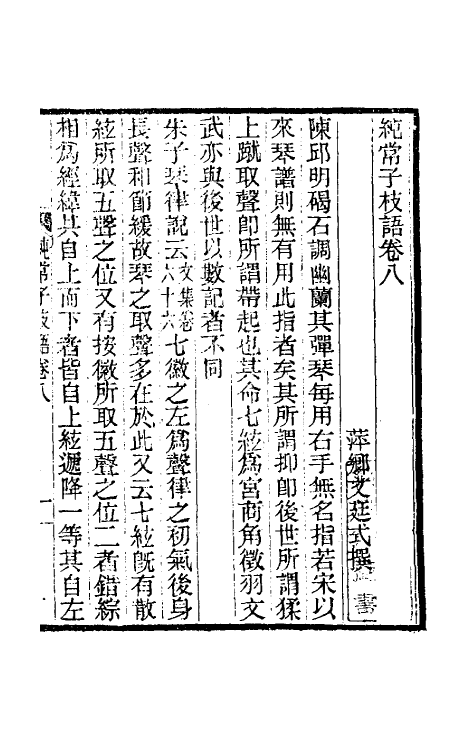 純常子枝語卷八
萍鄉文廷式撰
陳邱明碣石調幽蘭其彈琴每用右手無名指若宋以
來琴譜則無有用此指者矣其所謂抑卽後世所謂猱
上蹴取聲卽所謂帶起也其命七絃爲宮商角徵羽文
武亦與後世以數記者不同
朱子琴律說云文集卷六十六七徽之左爲聲律之初氣後身
長聲和節緩故琴之取聲多在於此又云七絃旣有散
絃所取五聲之位又有按徽所取五聲之位二者錯綜
相爲經緯其自上而下者皆自上絃遞降一等其自左
純常子枝語卷八 一